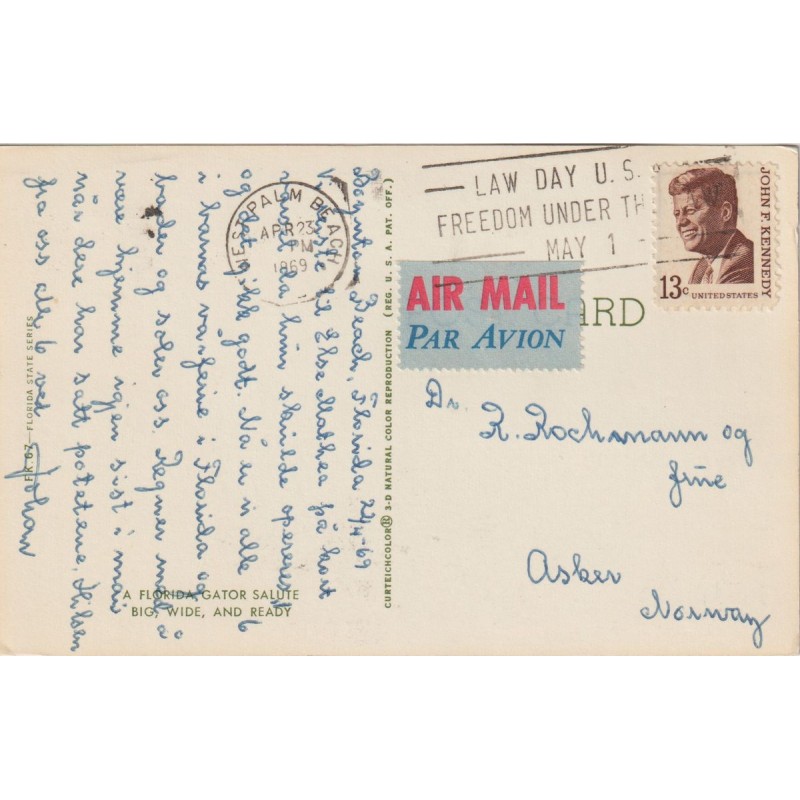 LAW DAY U.S.
FREEDOM UNDER TH
MAY 1
WEST PALM BEACH
APR 23
PM
1969
JOHN F. KENNEDY
13c UNITED STATES
AIR MAIL
PAR AVION
ARD
Boynton Beach, Florida 22/4-69
til Else Mathea på kort
hun skulde opereres
og gikk godt. Nå er vi alle 6
i barnas i Florida og
bader og soler oss. Regner med å
være hjemme igjen sist i mai
når dere har satt potetene. Hilsen
fra oss alle 6 ved
Johan
Dr. R. Rochmann og
frue
Asker
Norway
FK.67—FLORIDA STATE SERIES
A FLORIDA GATOR SALUTE
BIG, WIDE, AND READY
CURTEICHCOLOR® 3-D NATURAL COLOR REPRODUCTION (REG. U. S. A. PAT. OFF.)